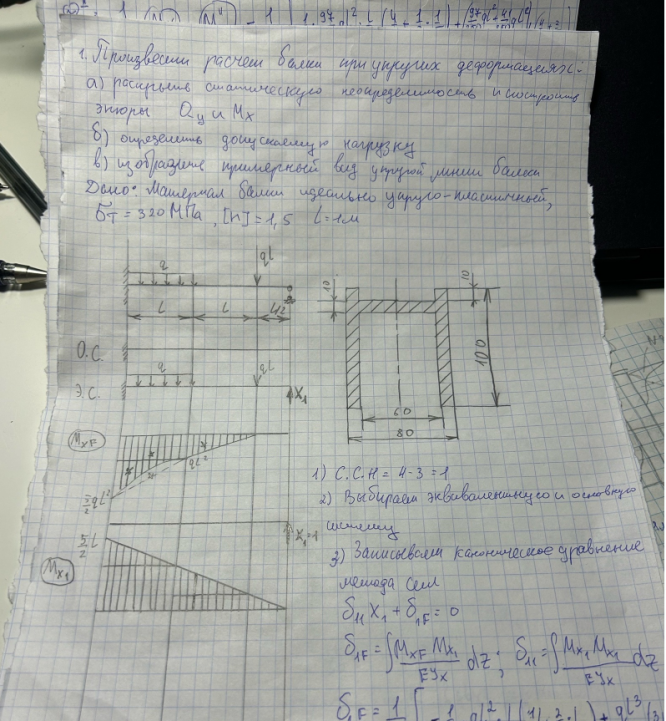 1. Произвести расчет балки при упругих деформациях:
а) раскрыть статическую неопределимость и построить
эпюры Qy и Mx
б) определить допускаемую нагрузку
в) изобразить примерный вид упругой линии балки
Дано: Материал балки идеально упруго-пластичный,
σT = 320 МПа, [n] = 1,5 l = 1м
q
ql
l
l
О.С.
q
ql
Э.С.
X1
MxF
ql²
5/2 ql²
X1=1
5/2 l
Mx1
10
10
100
60
80
1) С.С.Н = 4-3 = 1
2) Выбираем эквивалентную и основную
систему
3) Записываем каноническое уравнение
метода сил
δ11 X1 + δ1F = 0
δ1F = ∫ MxF Mx1 / EJx dz; δ11 = ∫ Mx1 Mx1 / EJx dz